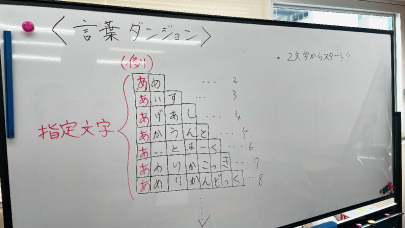 <言葉ダンジョン>
・2文字からスタート!!
(例)
指定文字
あめ ‥‥ 2
あいす ‥‥ 3
あげあし ‥‥ 4
あかうんと ‥‥ 5
あ
あめりかこっき ‥‥ 7
あめりかんどっく ‥‥ 8